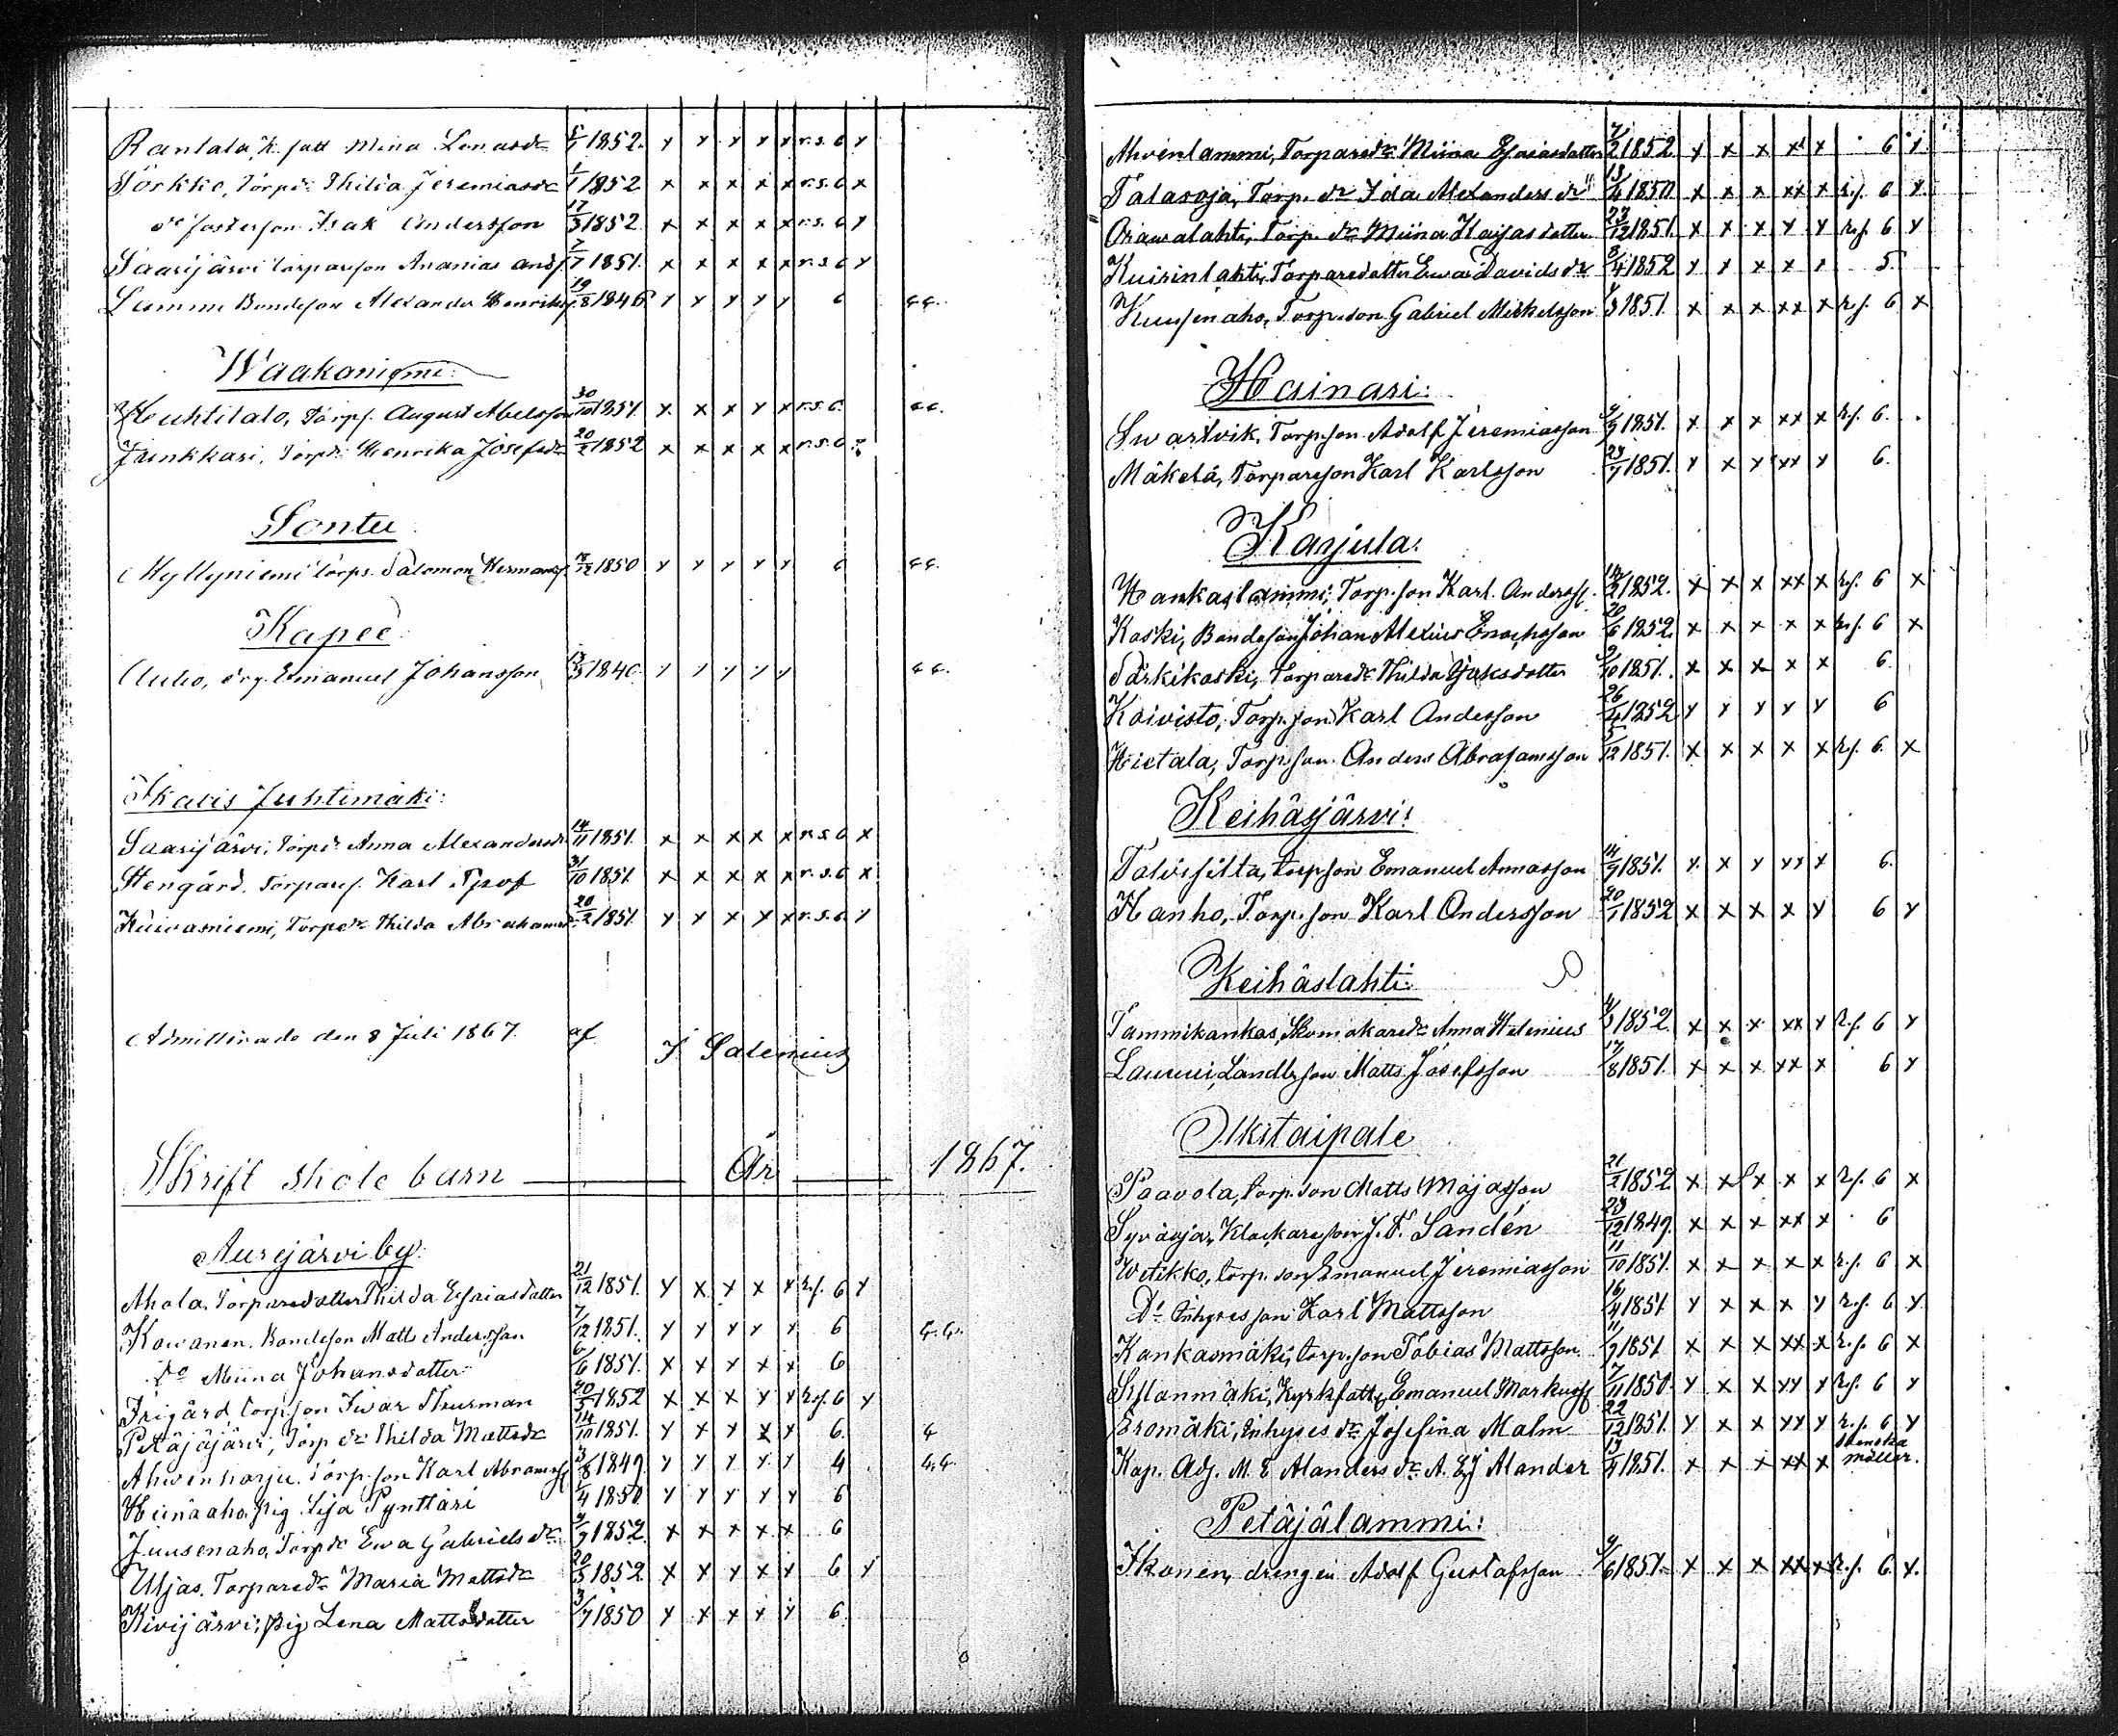 Rantala, K. fatt Mina Lenasdr 5/7 1852. x x x x x r.s. 6 x
Torkko, Torpdr Thilda Jeremiasdr 1/1 1852 x x x x x r.s. 6 x
do fosterson Isak Andersson 17/3 1852 x x x x x r.s. 6 x
Saarijärvi torparson Ananias Andss 7/7 1851. x x x x x r.s. 6 x
Lamme Bondeson Alexander Henrikss. 19/8 1846 x x x x x 6
Waakaniemi:
Huhtilalo, Torps. August Abelsson 30/10 1851. x x x x x r.s. 6.
Jänkkäri, Torpdr Henrika Josefsdr 20/2 1852 x x x x x r.s. 6
Sontu
Myllyniemi torps. Salomon Hermanss. 1850 x x x x x 6
Kapee
Auho, drg. Emanuel Johansson 1846 x x x x x
Ikalis Juhtimäki:
Saarijärvi, Torpdr Anna Alexandersdr 14/11 1851. x x x x x r.s. 6 x
Stengård. Torpares. Karl 31/10 1851 x x x x x r.s. 6 x
Kuivasniemi, Torpdr Thilda Abrahamsdr 20/2 1851. x x x x x r.s. 6 x
Admitterade den 8 Juli 1867. af
J Salenius
Skrift skole barn År 1867.
Aurejärvi by:
Ahola, Torparedotter Thilda Esaiasdotter 21/12 1851. x x x x x R.s. 6 x
Kowanen. Bondeson Matts Andersson 7/12 1851. x x x x x 6 G.G.
do Miina Johansdotter 6/6 1851. x x x x x 6
Frigård torpson Iwar Thurman 20/5 1852 x x x x x R.s. 6 x
Petäjäjärvi, Torp dr Thilda Mattsdr 14/10 1851. x x x x x 6. G
Ahwenharju. Torp. son Karl Abramss 3/8 1849. x x x x x 4 G.G.
Heinäaho, pig. Lisa Pynttäri 1/4 1850. x x x x x 6
Juusenaho, Torpdr Ewa Gabrielsdr 1852. x x x x x 6
Uljas. Torparedr Maria Mattsdr 20/5 1852 x x x x x 6 x
Kivijärvi; pig Lena Mattsdotter 3/7 1850 x x x x x 6.
Ahvenlammi, Torparedr Miina Esaiasdotter 7/2 1852 x x x x x 6 x
Talasoja, Torp. dr Ida Alexanders dr 13/4 1850 x x x xx x R.s. 6 x.
Oriawalahti, Torp. dr Miina Kaisasdotter 23/12 1851. x x x x x R.s. 6 x
Kuirinlahti, Torparedotter Ewa Davidsdr 3/4 1852 x x x x x 5.
Kuusenaho, Torp. son Gabriel Mickelsson 1851. x x x xx x R.s. 6 x
Hainari:
Swartvik, Torp. son Adolf Jeremiasson 1851. x x x xx x R.s. 6.
Mäkelä, Torpareson Karl Karlsson 23/7 1851. x x x xx x 6.
Karjula.
Hankaslammi, Torp. son Karl. Anderss. 14/2 1852. x x x xx x R.s. 6 x
Koski, Bondeson Johan Alexius Enochsson 20/6 1852. x x x x x R.s. 6 x
Särkikoski, Torparedr Thilda Isaksdotter 9/10 1851. x x x x x 6.
Koivisto, Torp. son Karl Andersson 26/4 1852 x x x x x 6
Hietala, Torp. son Anders Abrahamsson 5/12 1851. x x x x x R.s. 6. x
Keihäsjärvi:
Talvisilta, torpson Emanuel Annasson 14/9 1851. x x x xx x 6.
Hanho, Torp. son Karl Andersson 20/1 1852 x x x x x 6 x
Keihäslahti:
Tammikankas, Skomakaredr Anna Helenius 1852 x x x xx x R.s. 6 x
Laurui, Landb. son Matts Josefsson 17/8 1851. x x x xx x 6 x
Ilkitaipale
Paavola, torp. son Matts Majasson 21/2 1852 x x x x x R.s. 6 x
Syväoja, Klockareson J. F. Sandén 23/12 1849. x x x xx x 6
Wetikko, torp. son Emanuel Jeremiasson 11/10 1851. x x x x x R.s. 6 x
Do Inhyses son Karl Mattsson 16/4 1851. x x x x x R.s. 6 x
Kankasmäki, torp. son Tobias Mattsson 11/9 1851 x x x xx x R.s. 6 x
Syllanmäki, Kyrkfattg. Emanuel Markuss. 7/11 1850 x x x xx x R.s. 6 x
Eromäki, Inhyses dr Josefina Malm 22/12 1851. x x x xx x R.s. 6 x
Kap. Adj. M. E Alanders dr A. E J Alander 13/4 1851. x x x xx x svenska måller.
Petäjälammi:
Ikonen, drengen Adolf Gustafsson 9/6 1851. x x x xx x R.s. 6. x.